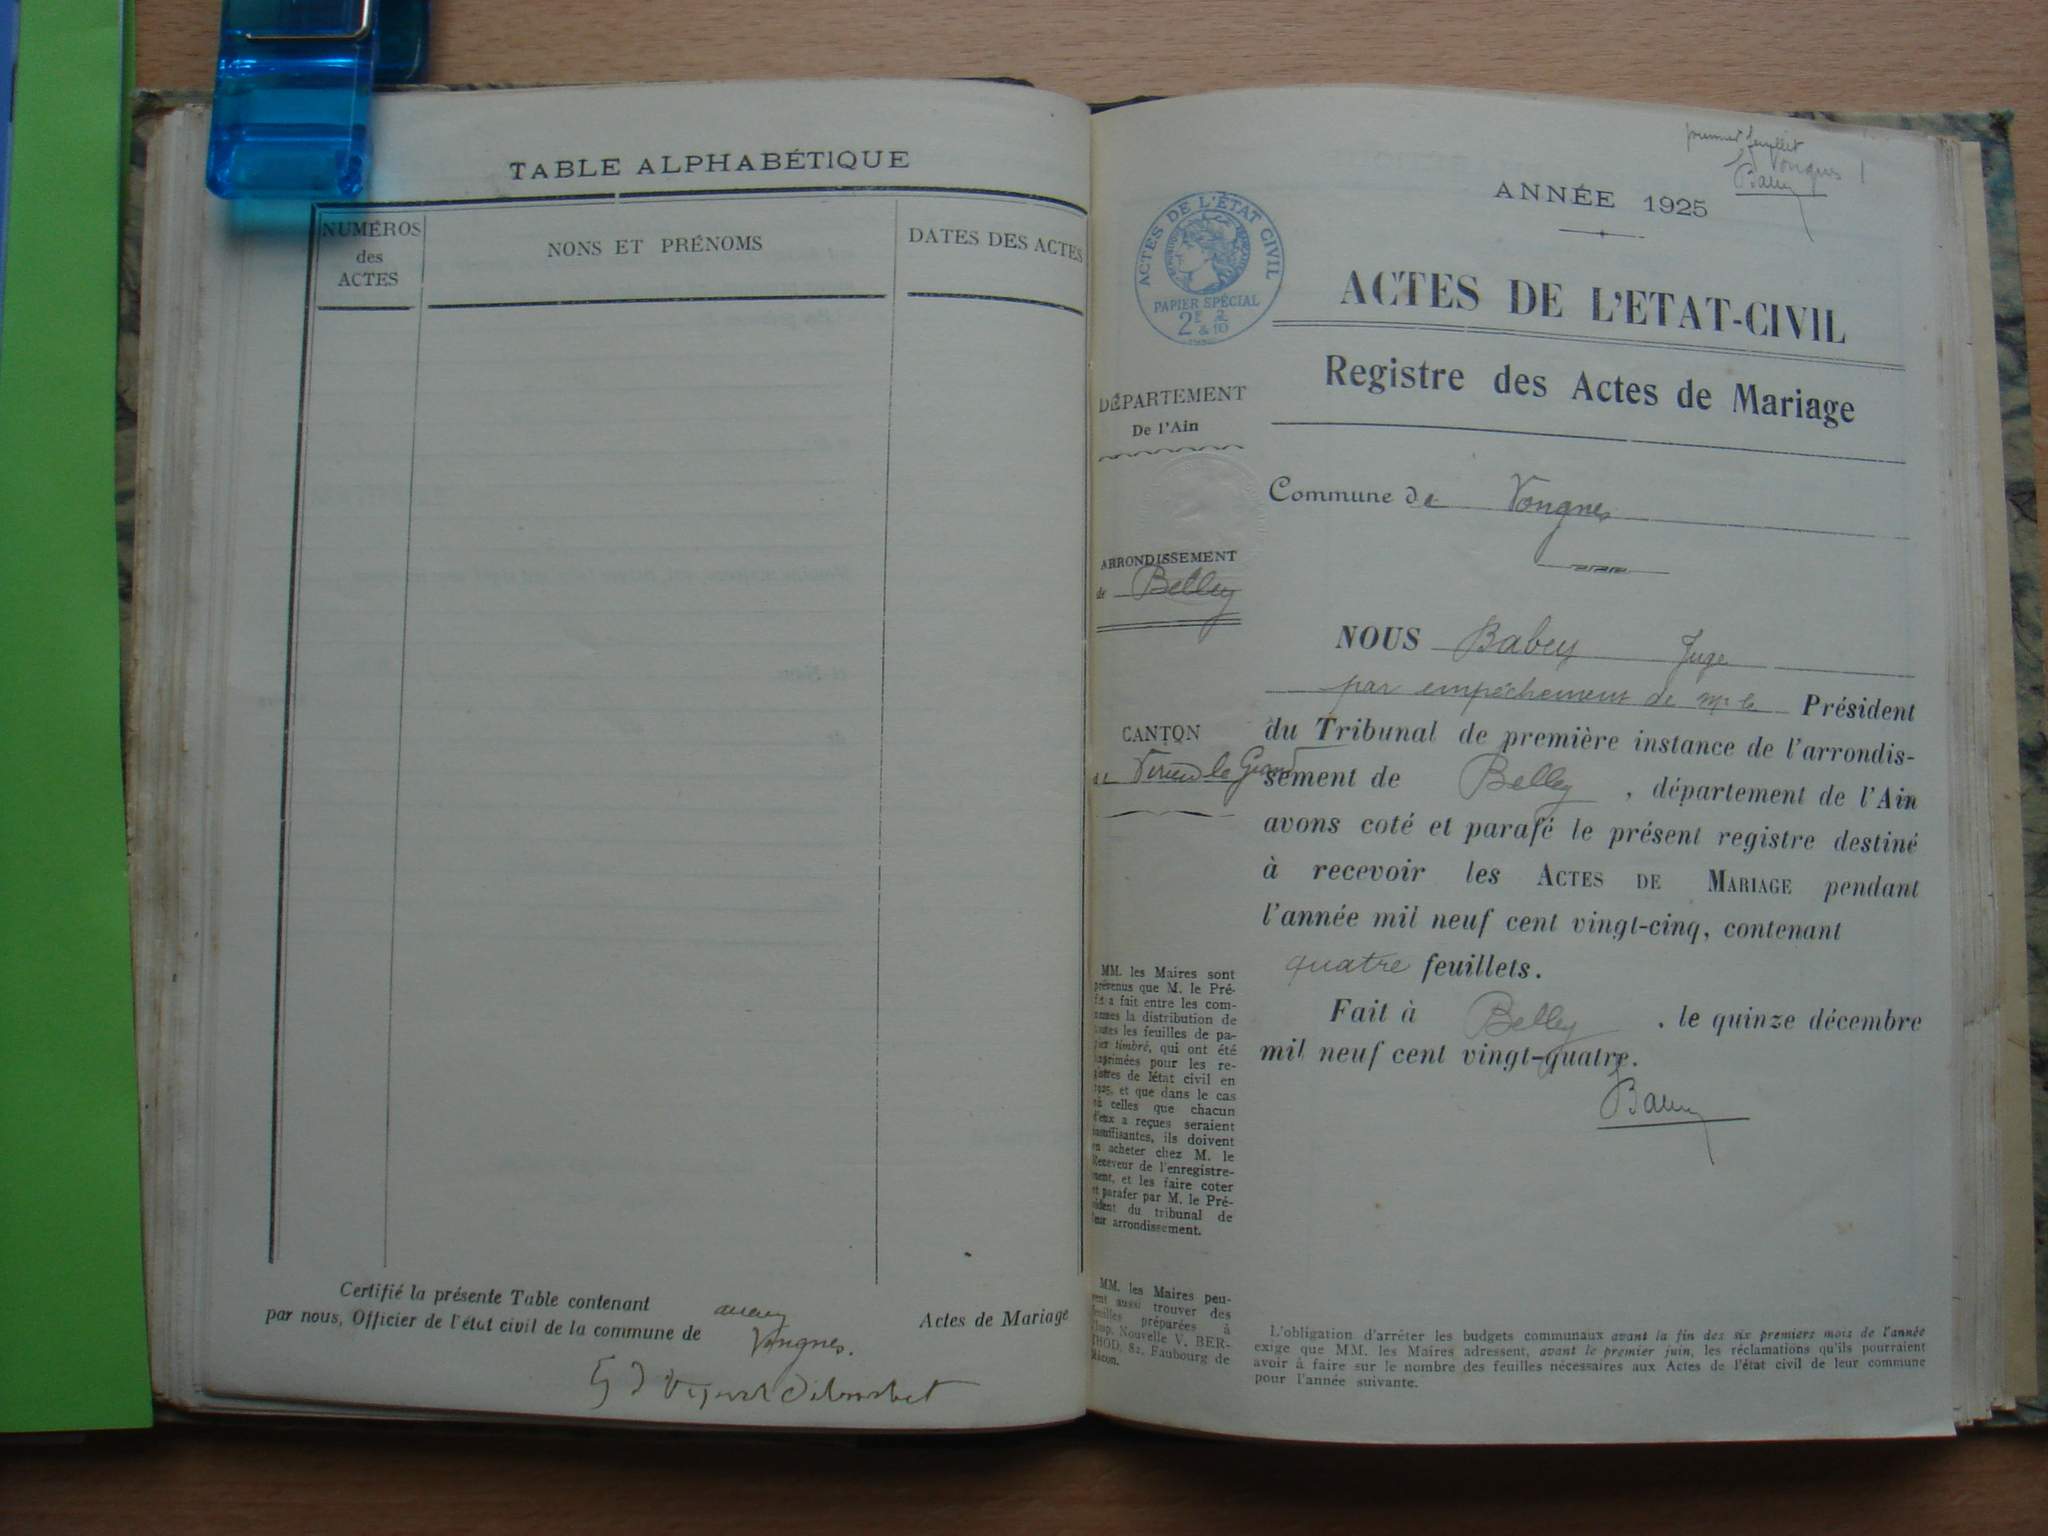 TABLE ALPHABÉTIQUE
NUMÉROS
des
ACTES
NONS ET PRÉNOMS
DATES DES ACTES
Certifié la présente Table contenant
Actes de Mariage
par nous, Officier de l'état civil de la commune de
Vongnes.
premier feuillet
Vongnes 1
Babey
ANNÉE 1925
ACTES DE L'ÉTAT CIVIL
RÉPUBLIQUE FRANÇAISE
PAPIER SPÉCIAL
2F & 2/10
ACTES DE L'ETAT-CIVIL
Registre des Actes de Mariage
DÉPARTEMENT
De l'Ain
Commune de Vongnes
ARRONDISSEMENT
de Belley
CANTON
de Virieu le Grand
NOUS Babey Juge
par empêchement de Mr le Président
du Tribunal de première instance de l'arrondis-
sement de Belley, département de l'Ain
avons coté et parafé le présent registre destiné
à recevoir les ACTES DE MARIAGE pendant
l'année mil neuf cent vingt-cinq, contenant
quatre feuillets.
Fait à Belley, le quinze décembre
mil neuf cent vingt-quatre.
Babey
MM. les Maires sont
prévenus que M. le Pré-
fet a fait entre les com-
munes la distribution de
toutes les feuilles de pa-
pier timbré, qui ont été
imprimées pour les re-
gistres de létat civil en
1925, et que dans le cas
où celles que chacun
d'eux a reçues seraient
insuffisantes, ils doivent
en acheter chez M. le
Receveur de l'enregistre-
ment, et les faire coter
et parafer par M. le Pré-
sident du tribunal de
leur arrondissement.
MM. les Maires peu-
vent aussi trouver des
feuilles préparées à
l'Imp. Nouvelle V. BER-
THOD, 82, Faubourg de
Mâcon.
L'obligation d'arrêter les budgets communaux avant la fin des six premiers mois de l'année
exige que MM. les Maires adressent, avant le premier juin, les réclamations qu'ils pourraient
avoir à faire sur le nombre des feuilles nécessaires aux Actes de l'état civil de leur commune
pour l'année suivante.